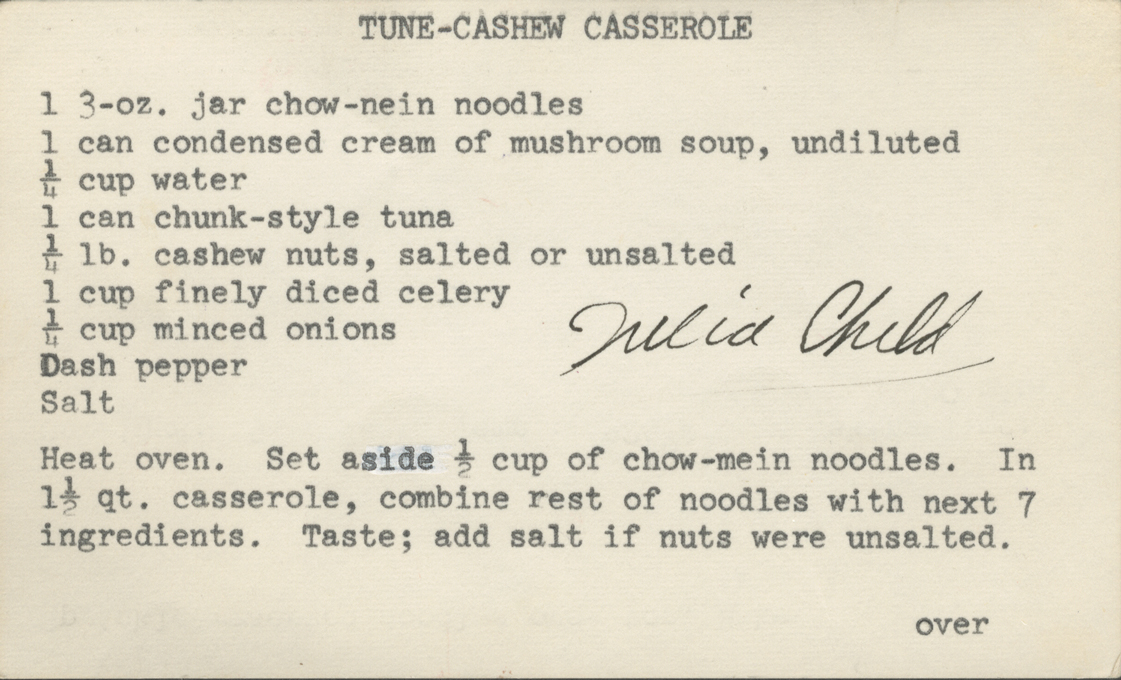 TUNE-CASHEW CASSEROLE
1 3-oz. jar chow-nein noodles
1 can condensed cream of mushroom soup, undiluted
¼ cup water
1 can chunk-style tuna
¼ lb. cashew nuts, salted or unsalted
1 cup finely diced celery
¼ cup minced onions
Dash pepper
Salt
Julia Child
Heat oven. Set aside ½ cup of chow-mein noodles. In
1½ qt. casserole, combine rest of noodles with next 7
ingredients. Taste; add salt if nuts were unsalted.
over